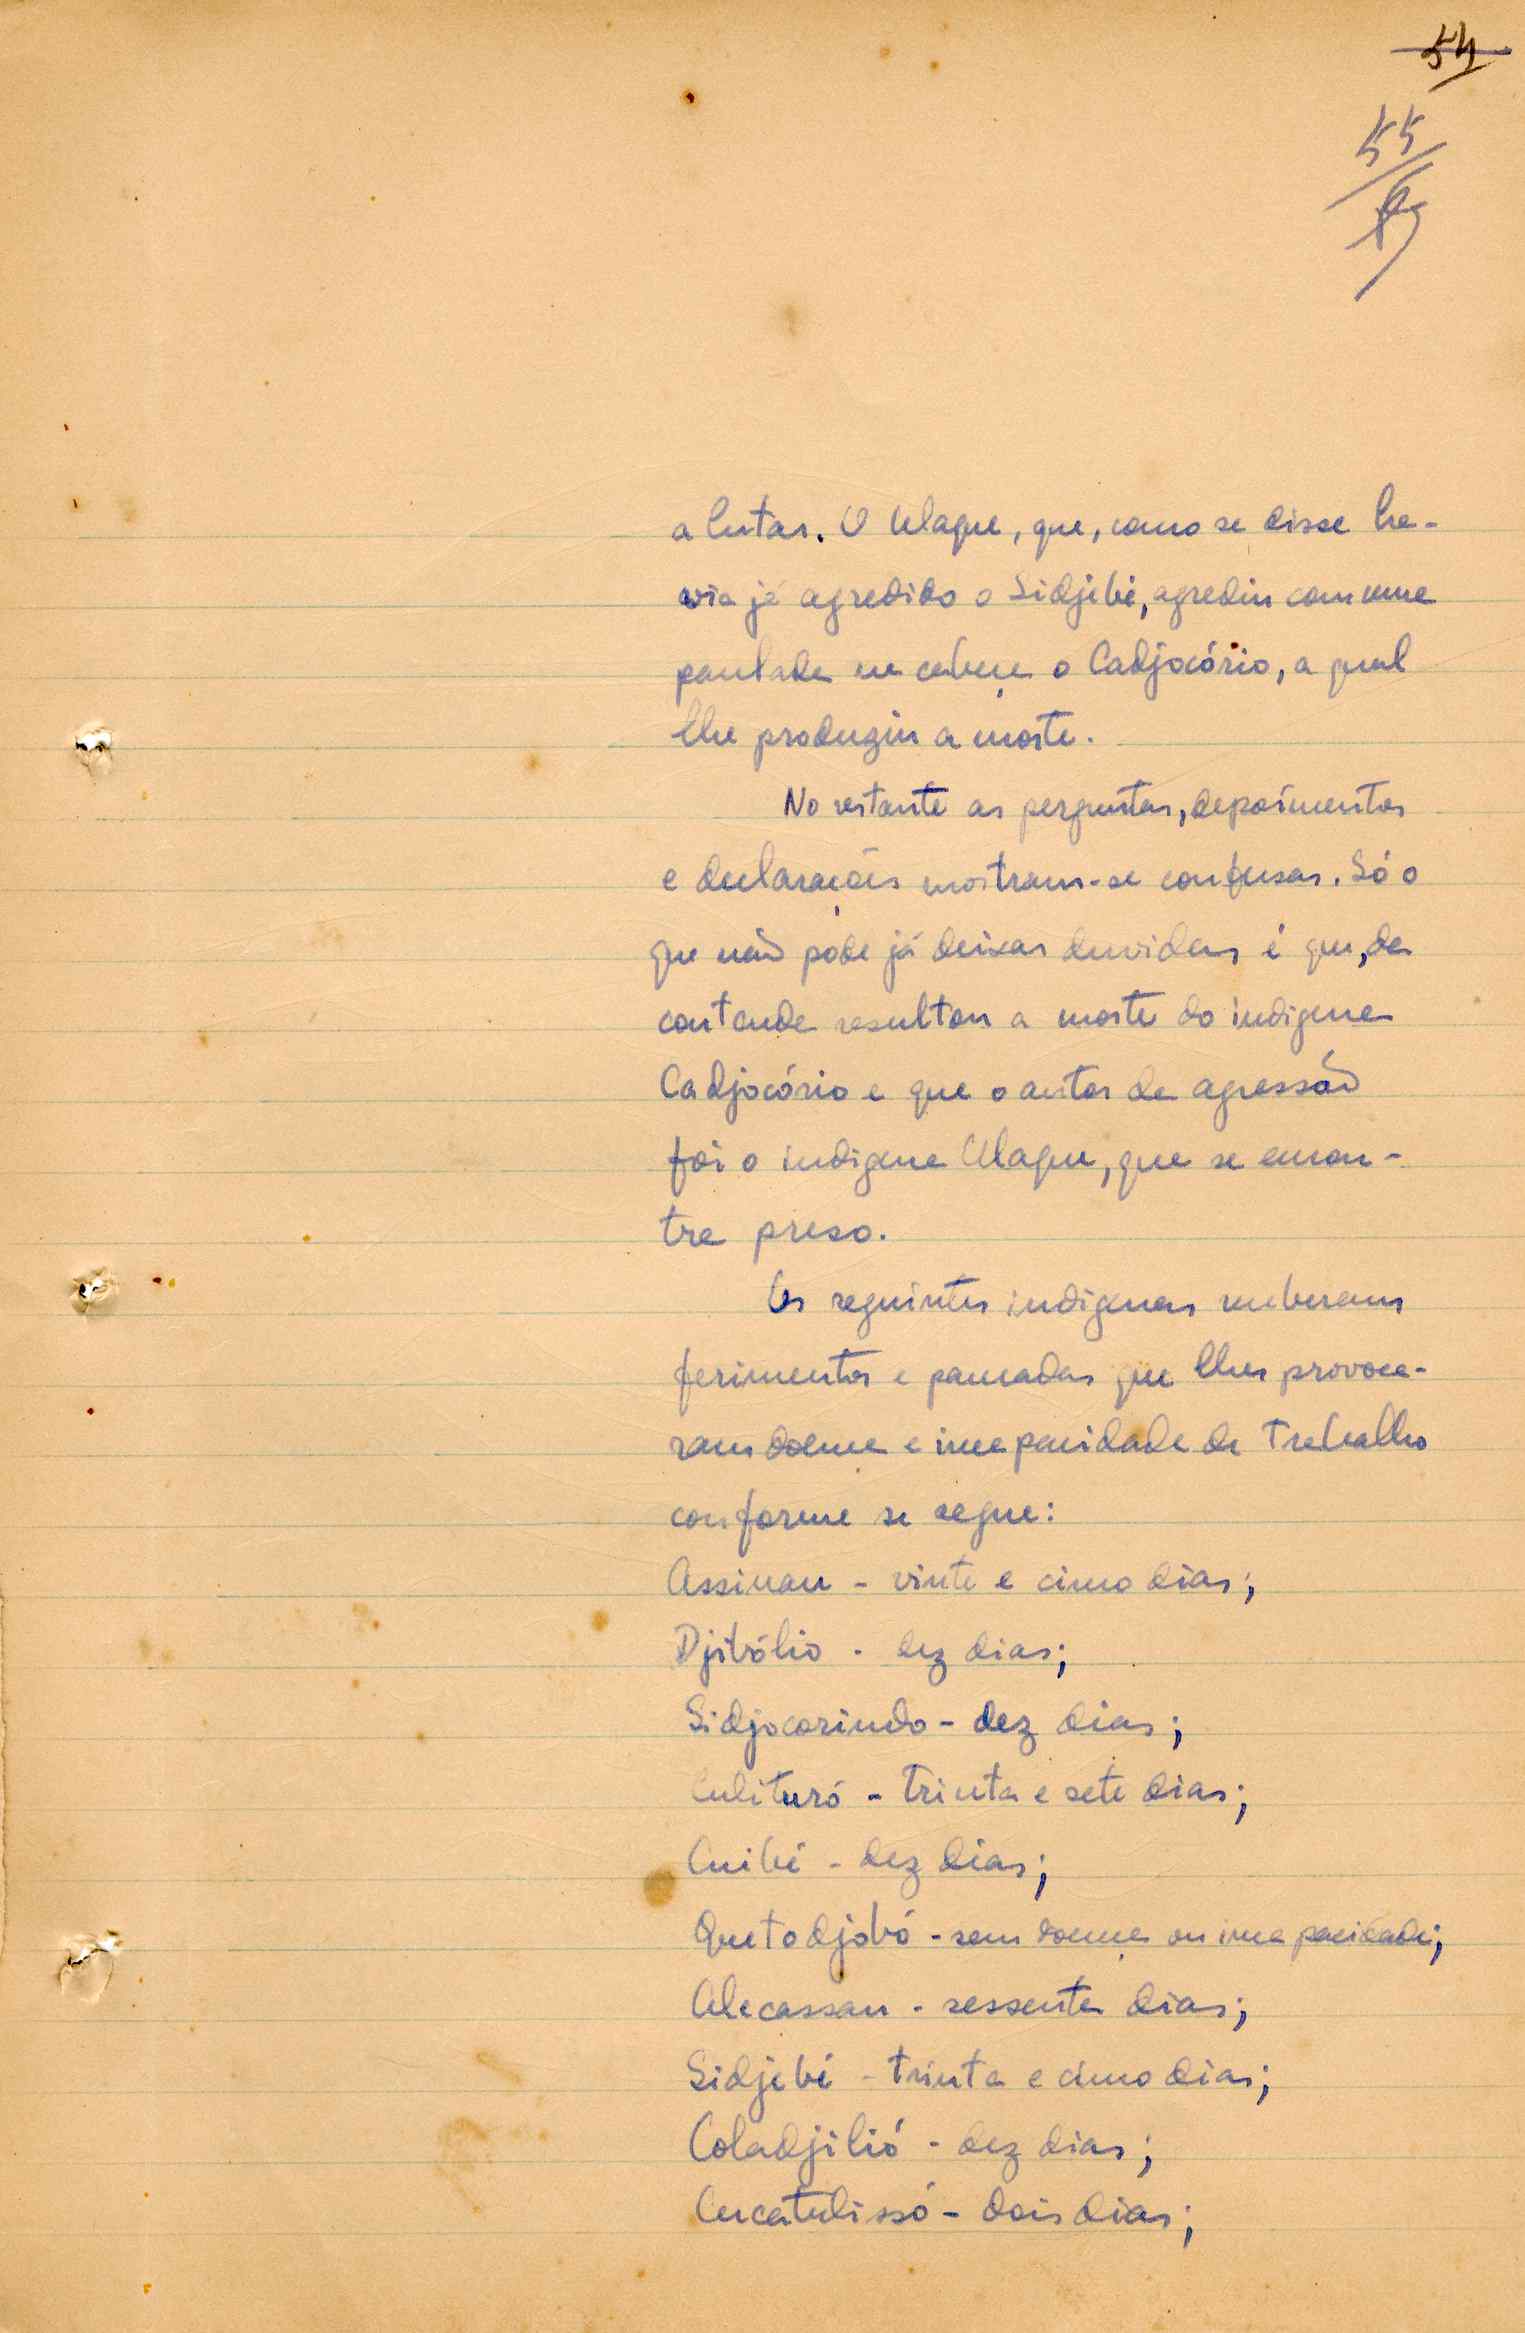 54
55
a lutar. O Ulaque, que, como se disse ha-
via já agredido o Sidjebé, agrediu com uma
paulada na cabeça o Cadjocório, a qual
lhe produziu a morte.
No restante as perguntas, depoimentos
e declarações mostram-se confusas. Só o
que não póde já deixar duvidas é que, da
contenda resultou a morte do indigena
Cadjocório e que o autor da agressão
foi o indigena Ulaque, que se encon-
tra preso.
Os seguintes indigenas receberam
ferimentos e pancadas que lhes provoca-
ram doença e incapacidade de trabalho
conforme se segue:
Assinau - vinte e cinco dias;
Djibólio - dez dias;
Sidjocorindo - dez dias;
Culituró - trinta e sete dias;
Cuibé - dez dias;
Quetodjobó - sem doença ou incapacidade;
Alecassau - sessenta dias;
Sidjebé - trinta e cinco dias;
Coladjilió - dez dias;
Cucatulissó - dois dias;